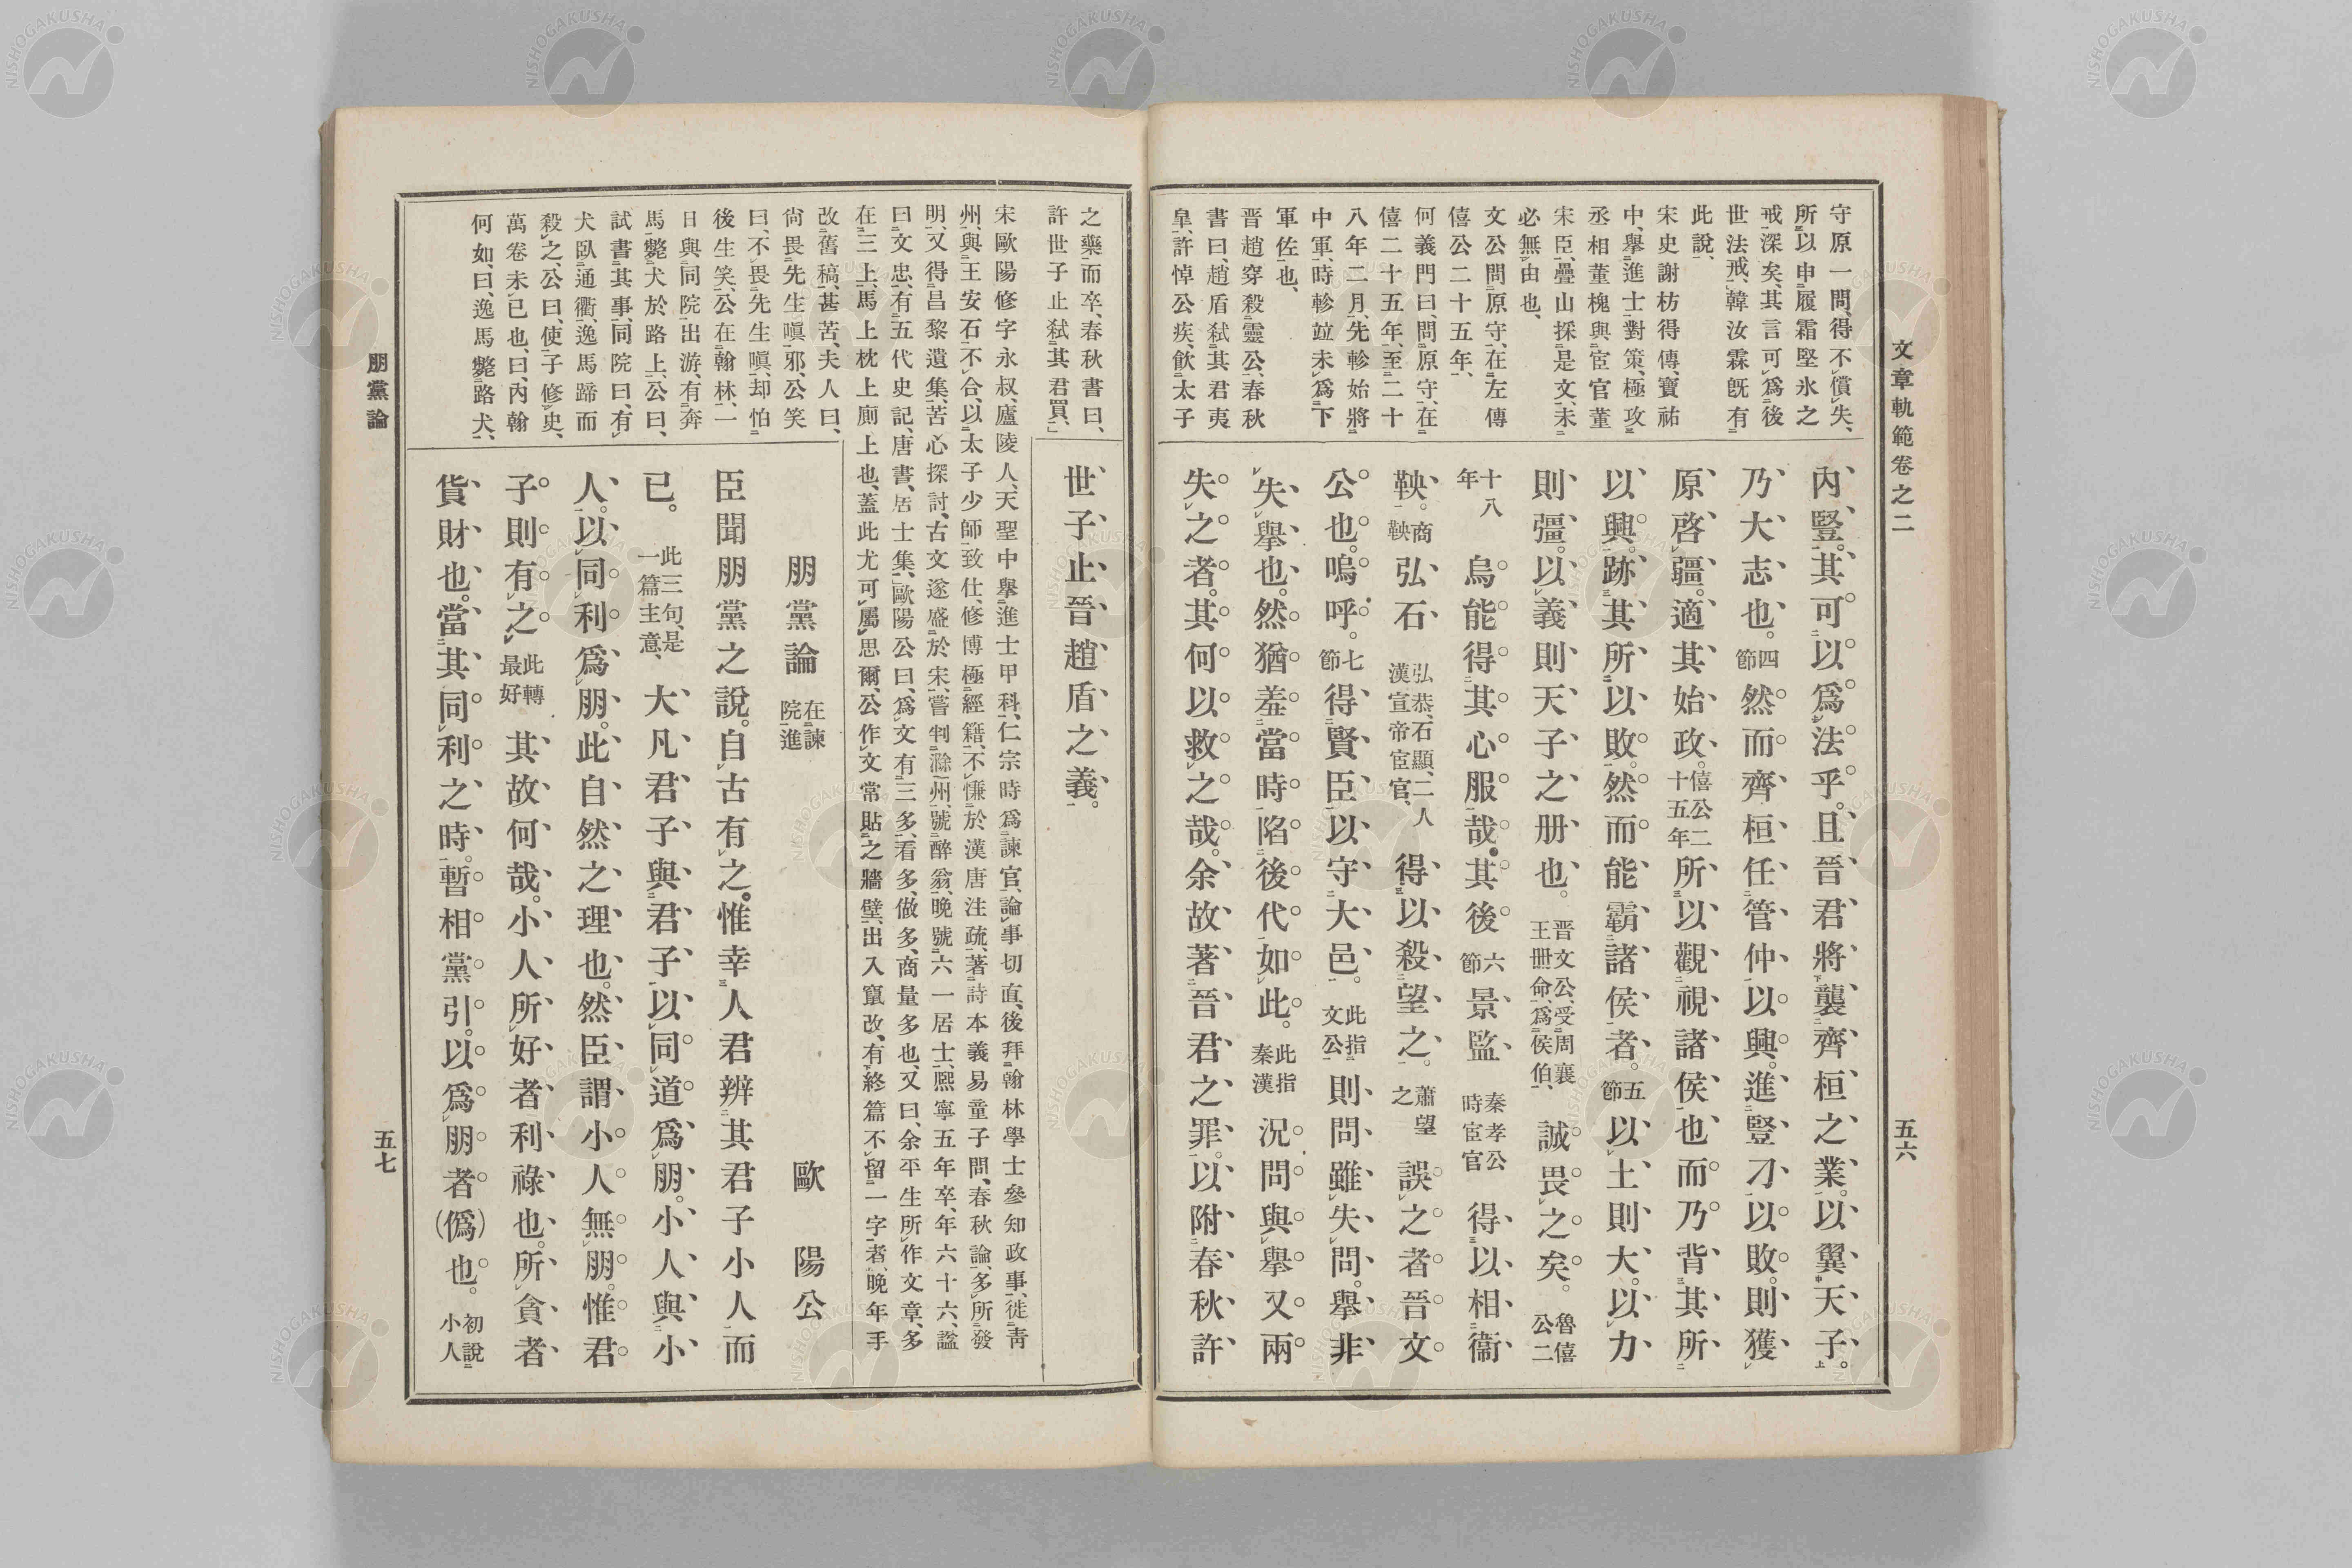 文章軌範卷之二
五六
守原一問、得不償失、
所以申履霜堅氷之
戒深矣、其言可爲後
世法戒、韓汝霖旣有
此說、
宋史謝枋得傳、寶祐
中、擧進士、對策、極攻
丞相董槐與宦官董
宋臣、疊山採是文、未
必無由也、
文公問原守、在左傳
僖公二十五年、
何義門曰、問原守、在
僖二十五年、至二十
八年二月、先軫始將
中軍、時軫竝未爲下
軍佐也、
晉趙穿殺靈公、春秋
書曰、趙盾弑其君夷
皐、許悼公疾、飮太子
內豎。其可以爲法乎。且晉君將襲齊桓之業。以翼天子。
乃大志也。四節然而齊桓任管仲以興。進豎刁以敗。則獲
原啓疆。適其始政。僖公二十五年所以觀視諸侯也。而乃背其所
以興。跡其所以敗。然而能霸諸侯者。五節以土則大。以力
則彊。以義則天子之册也。晉文公、受周襄王册命、爲侯伯、誠畏之矣。魯僖公二
十八年烏能得其心服哉。其後六節景監秦孝公時宦官得以相衞
鞅。商鞅弘石弘恭、石顯、二人漢宣帝宦官、得以殺望之。蕭望之誤之者。晉文
公也。嗚呼。七節得賢臣以守大邑。此指文公則問雖失問。擧非
失擧也。然猶羞當時陷後代如此。此指秦漢況問與擧又兩
失之者。其何以救之哉。余故著晉君之罪。以附春秋許
之藥而卒、春秋書曰、
許世子止弑其君買、
世子止晉趙盾之義。
宋歐陽修字永叔、廬陵人、天聖中擧進士甲科、仁宗時爲諫官、論事切直、後拜翰林學士參知政事、徙靑
州、與王安石不合、以太子少師致仕、修博極經籍、不慊於漢唐注疏、著詩本義易童子問、春秋論、多所發
明、又得昌黎遺集、苦心探討、古文遂盛於宋、嘗判滁州、號醉翁、晚號六一居士、熙寧五年卒、年六十六、謚
曰文忠、有五代史記、唐書、居士集、歐陽公曰、爲文有三多、看多、做多、商量多也、又曰、余平生所作文章、多
在三上、馬上枕上廁上也、蓋此尤可屬思爾、公作文常貼之牆壁、出入竄改、有終篇不留一字者、晚年手
改舊稿、甚苦、夫人曰、
尙畏先生嗔邪、公笑
曰、不畏先生嗔、却怕
後生笑、公在翰林、一
日與同院出游、有奔
馬斃犬於路上、公曰、
試書其事、同院曰、有
犬臥通衢、逸馬蹄而
殺之、公曰、使子修史、
萬卷未已也、曰、內翰
何如、曰、逸馬斃路犬、
朋黨論在諫院進 歐陽公
臣聞朋黨之說。自古有之。惟幸人君辨其君子小人而
已。此三句、是一篇主意、大凡君子與君子。以同道爲朋。小人與小
人。以同利爲朋。此自然之理也。然臣謂小人無朋。惟君
子則有之。此轉最好其故何哉。小人所好者利祿也。所貪者
貨財也。當其同利之時。暫相黨引。以爲朋者(僞)也。初說小人
朋黨論
五七